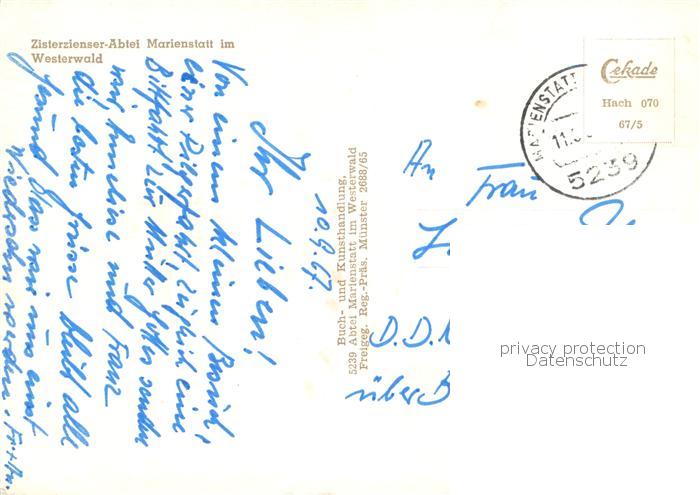 Zisterzienser-Abtei Marienstatt im
Westerwald
10.9.67.
Ihr Lieben!
Von einem kleinen Besuch,
einer Pilgerfahrt, zugleich eine
Bittfahrt zur Mutter Gottes senden
wir Anneliese und Franz
die besten Grüsse bleibt alle
gesund dass wir uns einst
wiedersehn werden.
Buch- und Kunsthandlung,
5239 Abtei Marienstatt im Westerwald
Freigeg. Reg.-Präs. Münster 2688/65
Cekade
Hach 070
67/5
MARIENSTATT
11.
5239
An
Frau
D.D.
über
privacy protection
Datenschutz